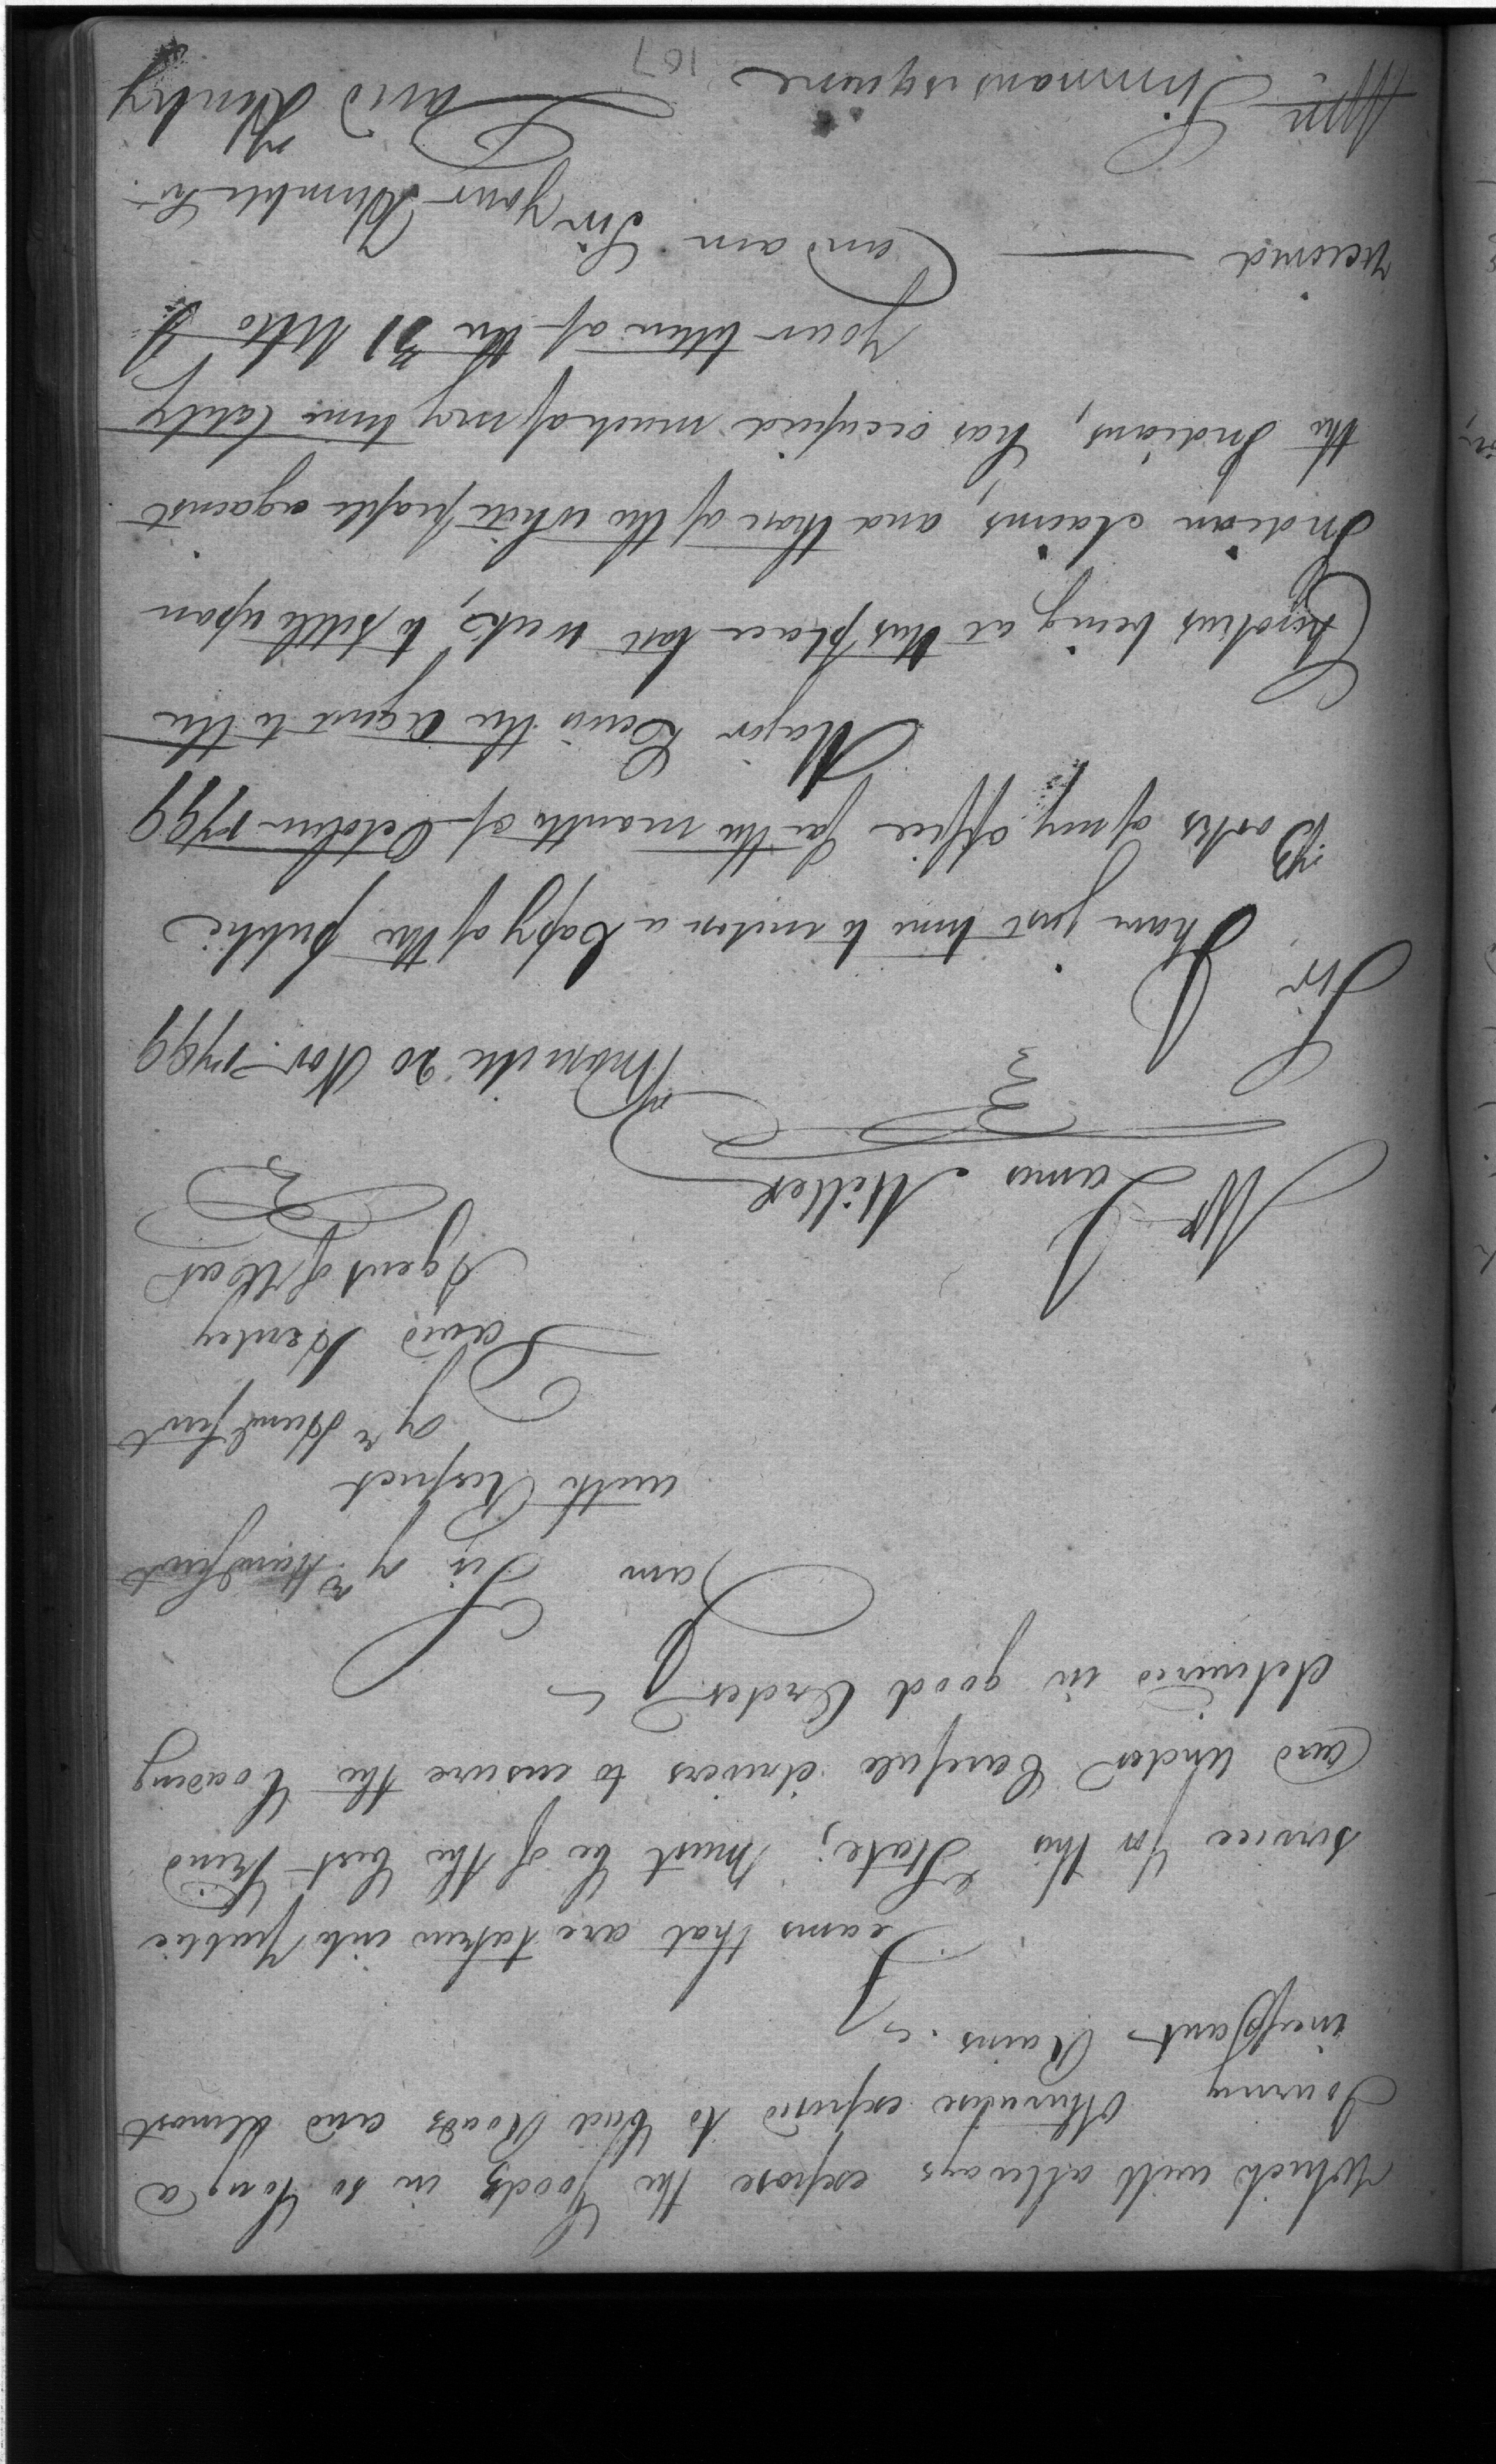 which will always expose the Goods in so long a
Journey otherwise exposed to bad Roads and almost
incessant Rains.
Teams that are taken into public
service for this State; must be of the best kind
and under Carefull drivers to ensure the Loading
delivered in good Order
I am Sir yr Hum Servt
with Respect
yr Huml Servt
David Henley
Agent of War
Mr James Miller
Knoxville 20 Nov. 1799
Sir,
I have just time to inclose a Copy of the public
Works of my office for the month of October 1799
Major Lewis the Agent to the
Cherokees being at this place last week, to settle upon
Indian claims, and those of the white people against
the Indians, has occupied much of my time lately
Your letter of the 31 Ulto is
received
and am Sir
your Humble Sr
David Henley
Wm Simmons esquire
107